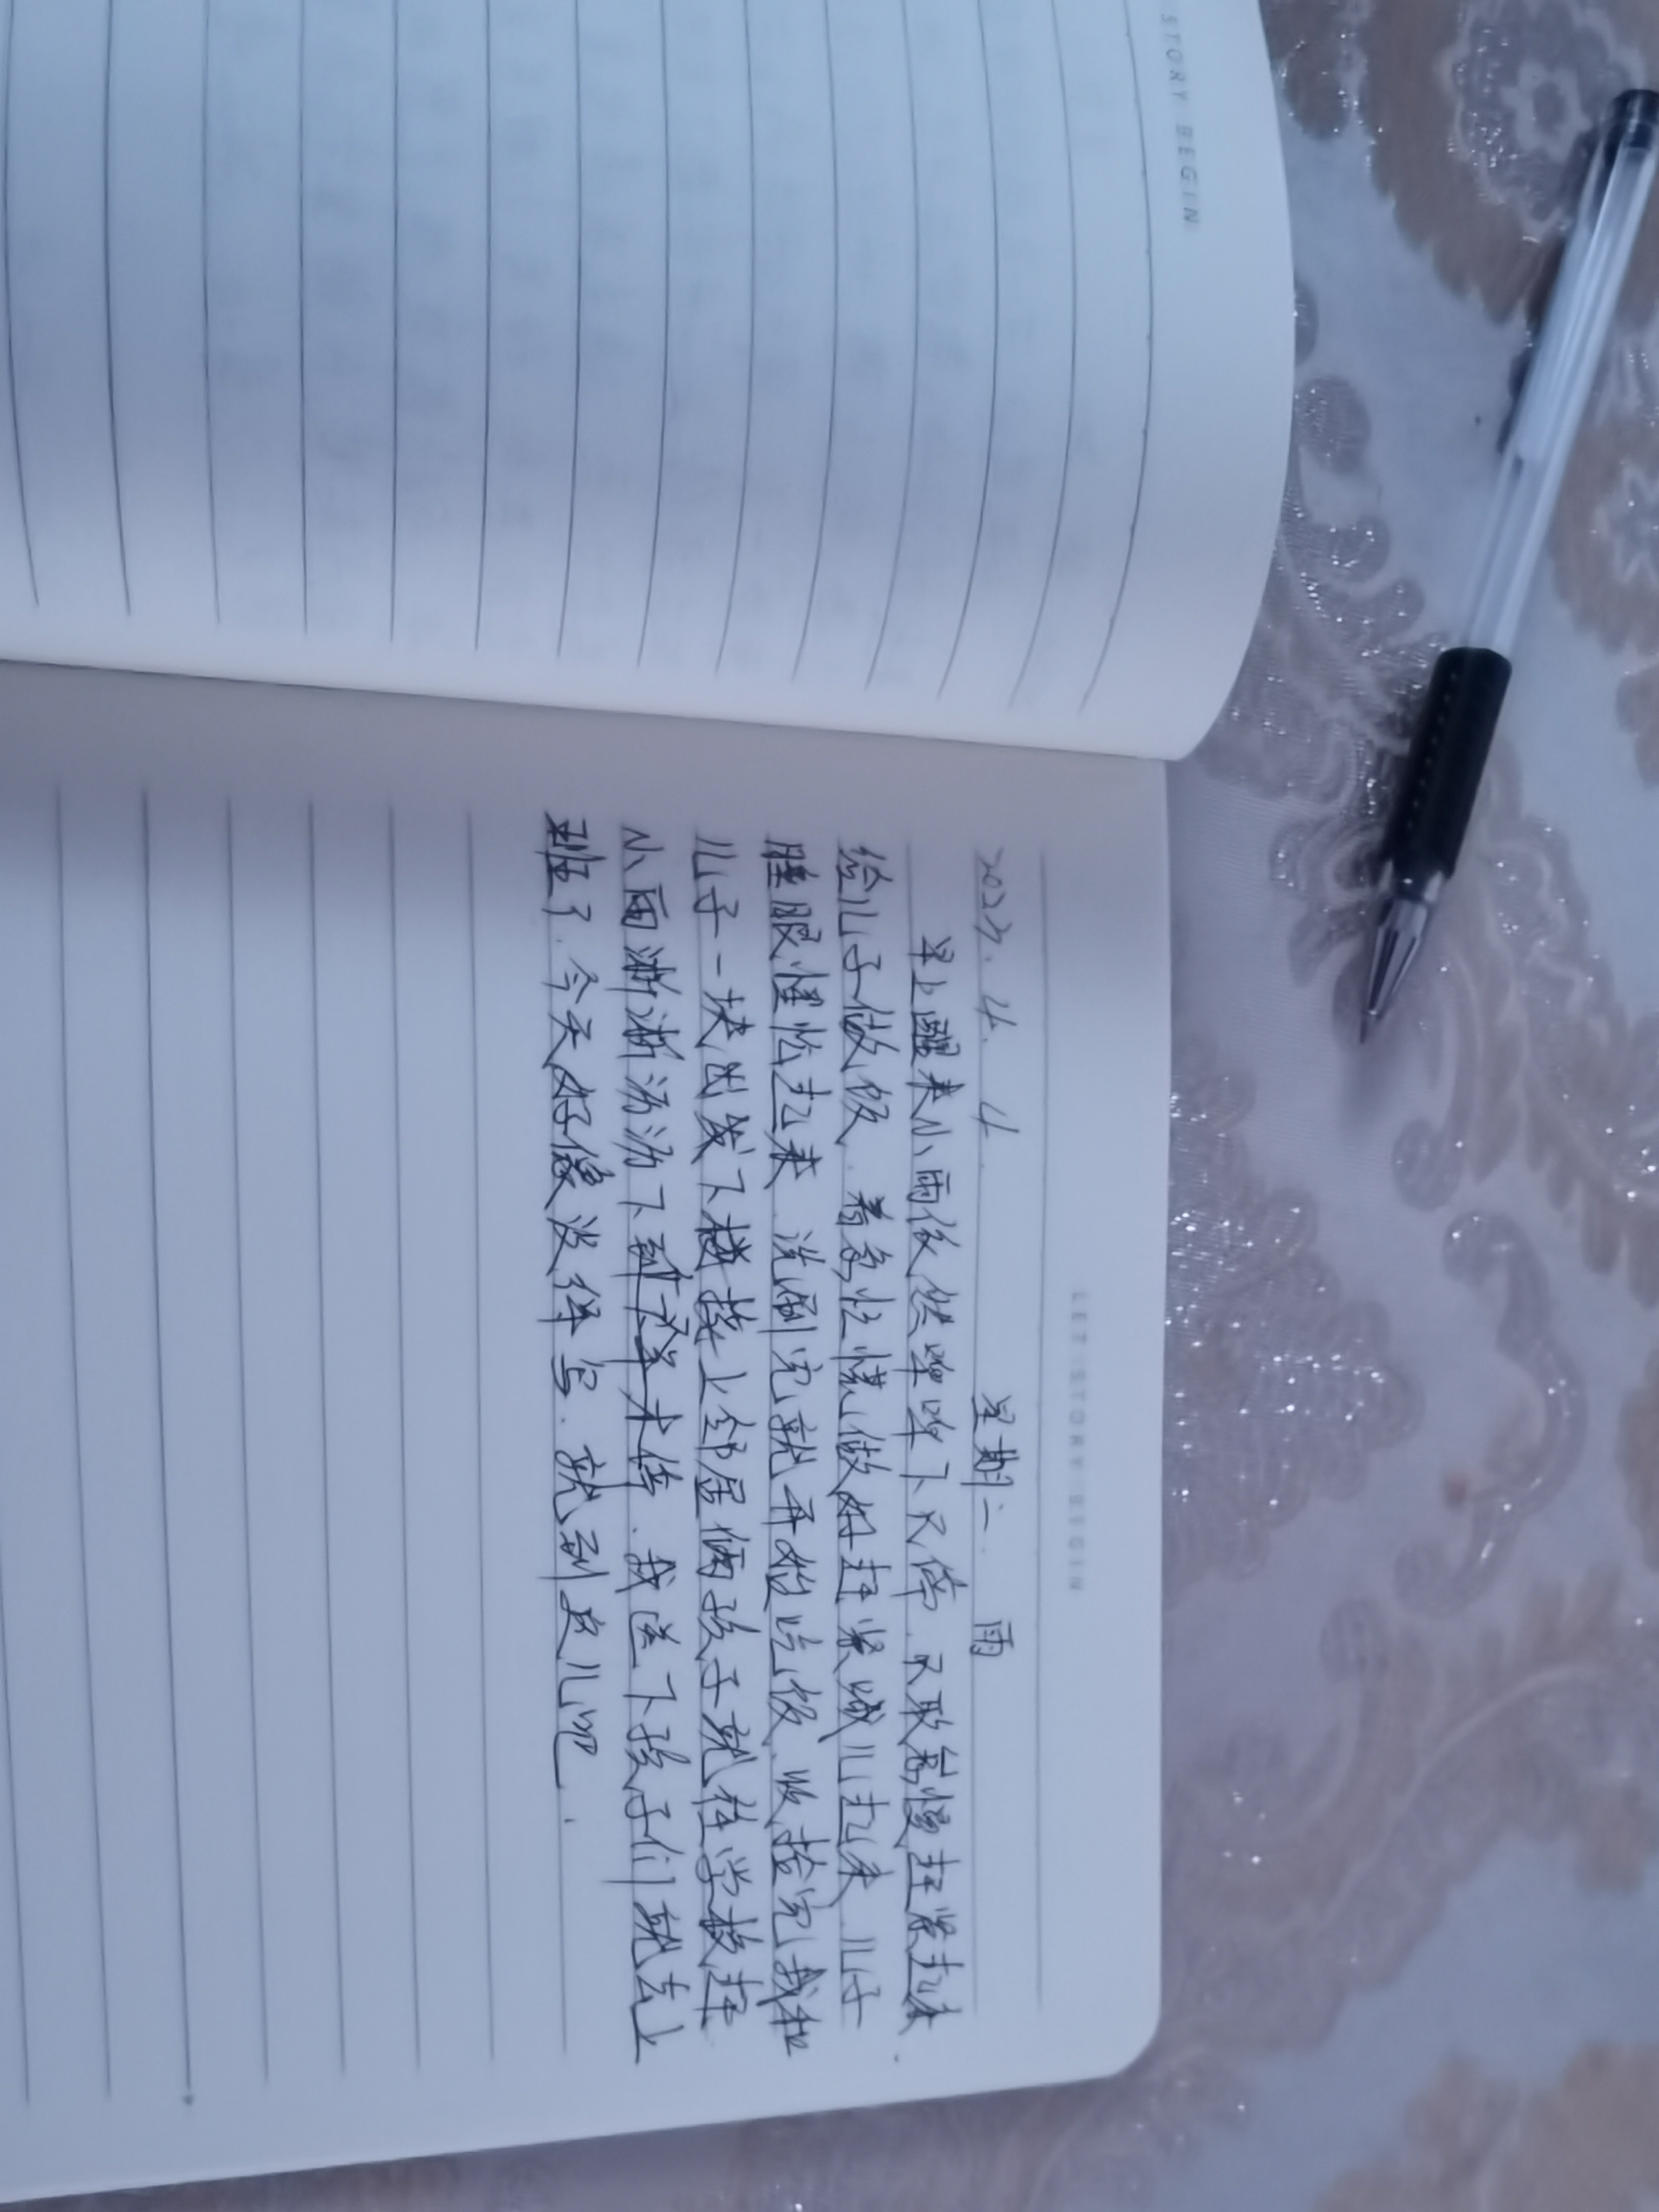 STORY BEGIN
LET STORY BEGIN
2023. 4. 4. 星期二. 雨
早上醒来小雨依然哗哗下不停.不敢怠慢赶紧起床.
给儿子做饭.着急忙慌做好赶紧喊儿起来.儿子
睡眼惺忪起来.洗涮完就开始吃饭.收拾完我和
儿子一块出发下楼接上邻居俩孩子就往学校赶
小雨淅淅沥沥下到本停.我送下孩子们就去上
班了.今天好像没得写.就到这儿吧.